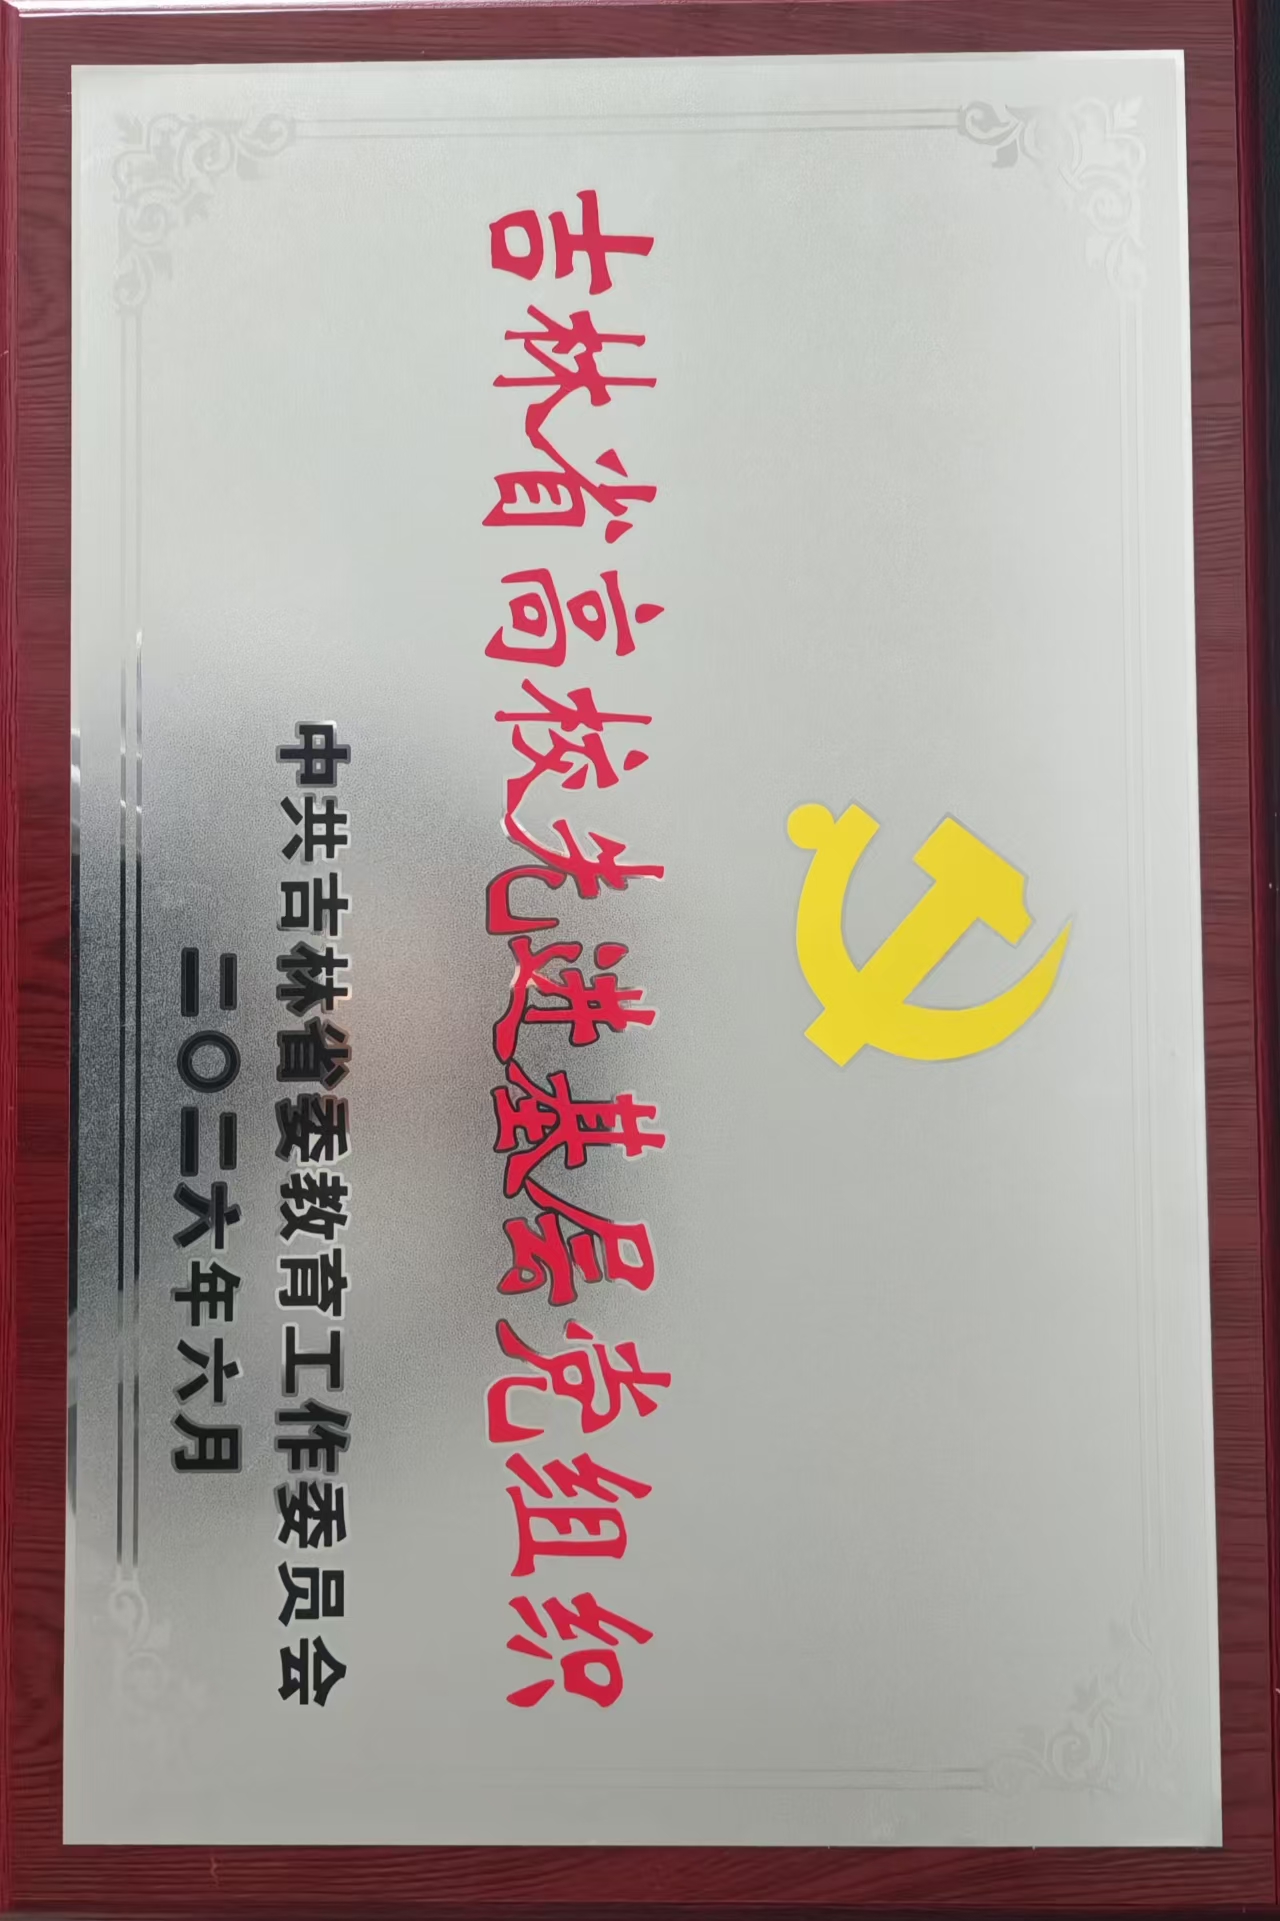 吉林省高校先进基层党组织
中共吉林省委教育工作委员会
二〇二六年六月